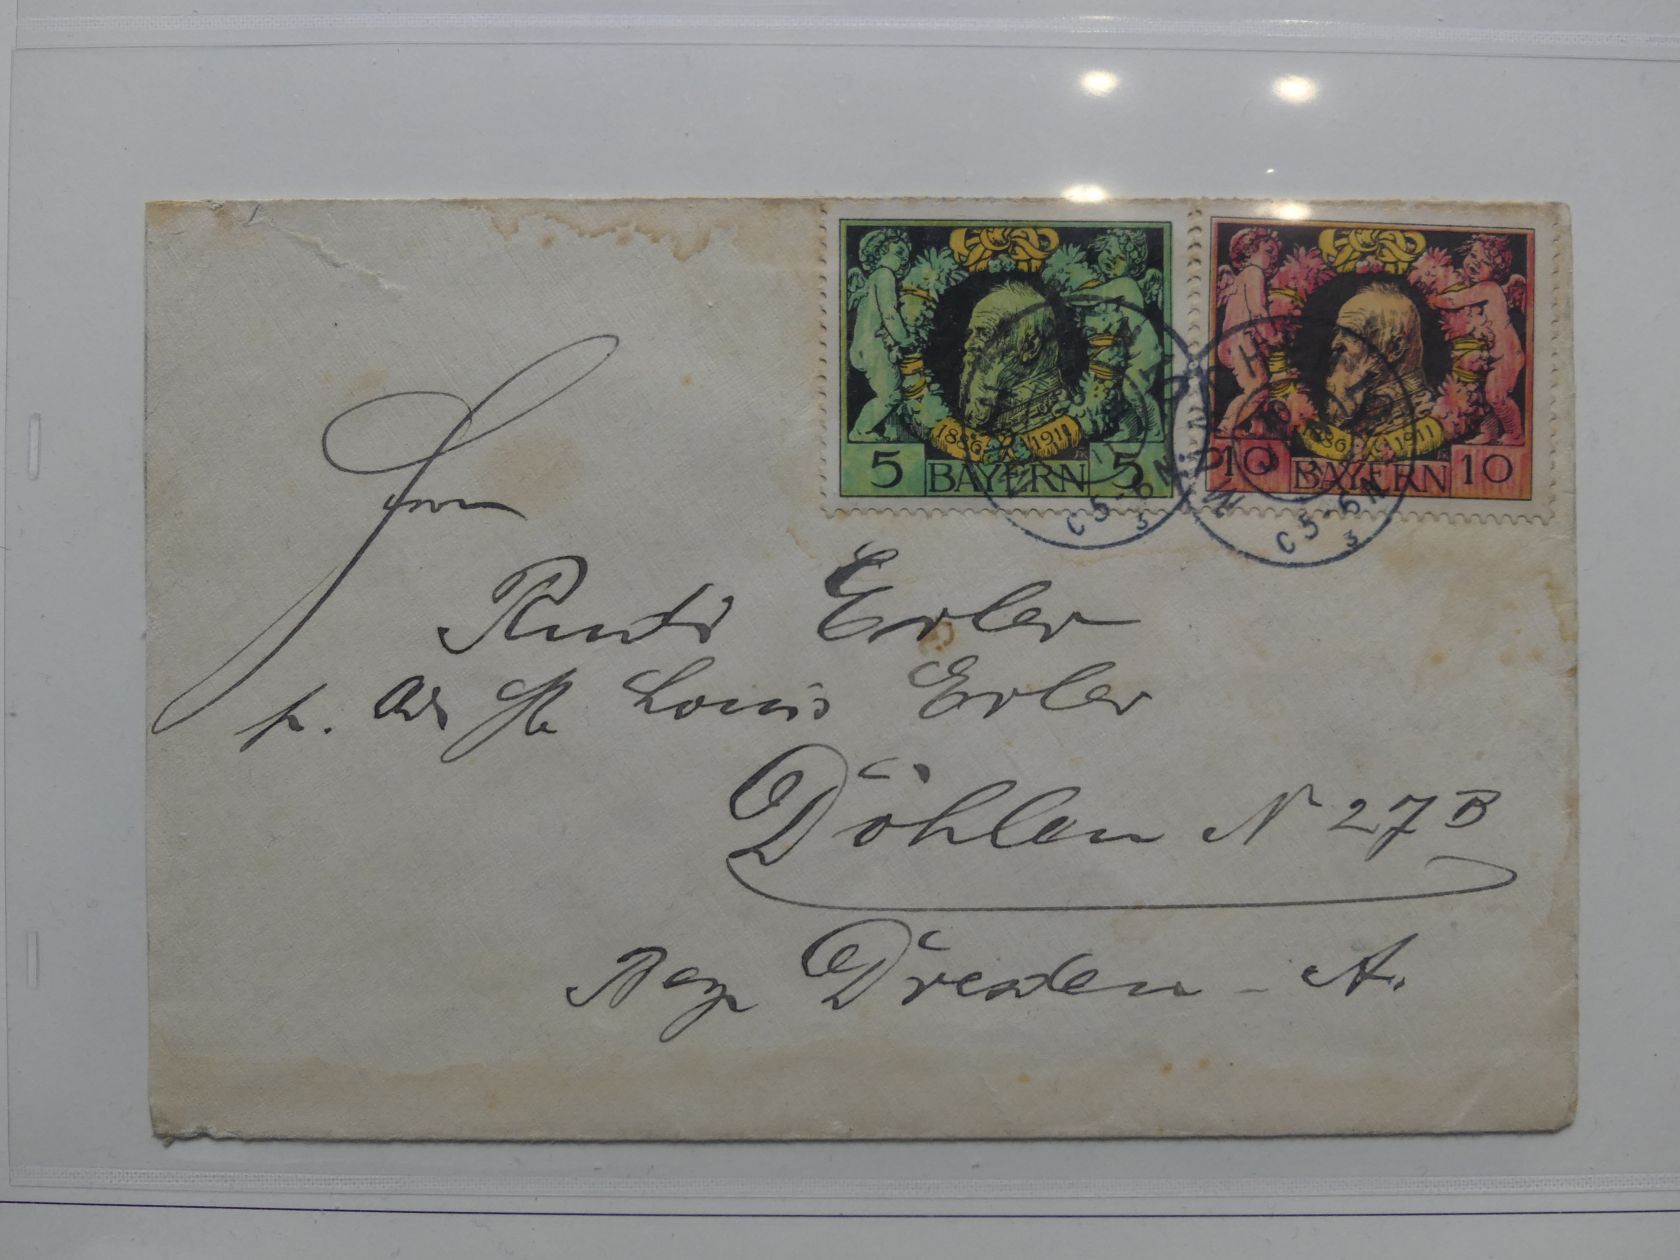 1886 1911
5 BAYERN 5
1886 1911
10 BAYERN 10
C 5-6 N
3
C 5-6 N
3
Herrn
Rudi Erler
p. Adr. Louis Erler
Döhlen N 27 B
Bez Dresden - A.